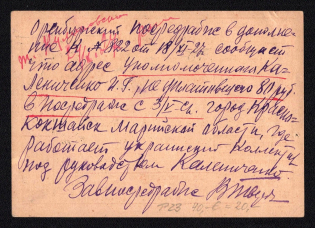 Оренбургский Посредрабис в дополне-
ние к № 822 от 18/XI-27 сообщает
что адрес уполномоченного Ка-
ленченко И.Г. не уплатившего 80 руб.
в Посредрабис с 3/IV сг. город Красно-
кокшайск Марийской области, где
работает украинский коллектив
под руководством Каленченко
Завпосредрабис